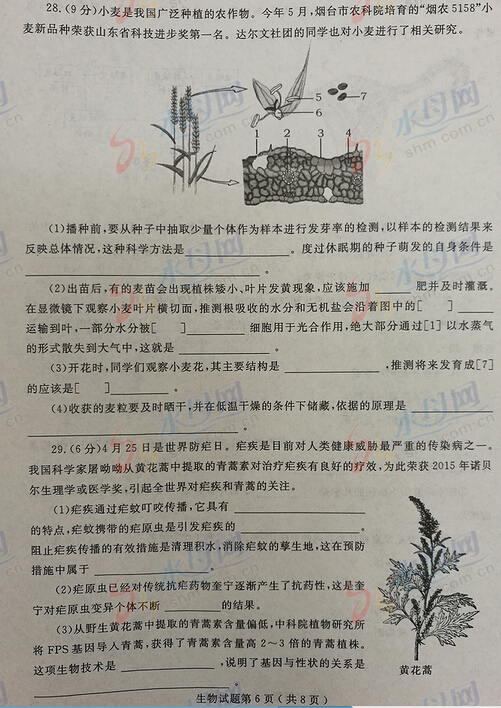 28.(9分)小麦是我国广泛种植的农作物。今年5月,烟台市农科院培育的“烟农5158”小
麦新品种荣获山东省科技进步奖第一名。达尔文社团的同学也对小麦进行了相关研究。
5
7
6
1 2 3 4
(1)播种前,要从种子中抽取少量个体作为样本进行发芽率的检测,以样本的检测结果来
反映总体情况,这种科学方法是________。度过休眠期的种子萌发的自身条件是
________。
(2)出苗后,有的麦苗会出现植株矮小、叶片发黄现象,应该施加____肥并及时灌溉。
在显微镜下观察小麦叶片横切面,推测根吸收的水分和无机盐会沿着图中的[ ]____
运输到叶,一部分水分被[ ]____细胞用于光合作用,绝大部分通过[1]以水蒸气
的形式散失到大气中,这就是________。
(3)开花时,同学们观察小麦花,其主要结构是________,推测将来发育成[7]
的应该是[ ]____。
(4)收获的麦粒要及时晒干,并在低温干燥的条件下储藏,依据的原理是________
________。
29.(6分)4月25日是世界防疟日。疟疾是目前对人类健康威胁最严重的传染病之一。
我国科学家屠呦呦从黄花蒿中提取的青蒿素对治疗疟疾有良好的疗效,为此荣获2015年诺贝
尔生理学或医学奖,引起全世界对疟疾和青蒿的关注。
(1)疟疾通过疟蚊叮咬传播,它具有________
的特点,疟蚊携带的疟原虫是引发疟疾的________。
阻止疟疾传播的有效措施是清理积水,消除疟蚊的孳生地,这在预防
措施中属于________。
(2)疟原虫已经对传统抗疟药物奎宁逐渐产生了抗药性,这是奎
宁对疟原虫变异个体不断____的结果。
(3)从野生黄花蒿中提取的青蒿素含量偏低,中科院植物研究所
将FPS基因导入青蒿,获得了青蒿素含量高2～3倍的青蒿植株。
这项生物技术是________,说明了基因与性状的关系是
________
黄花蒿
生物试题第6页(共8页)
水印网
shm.com.cn